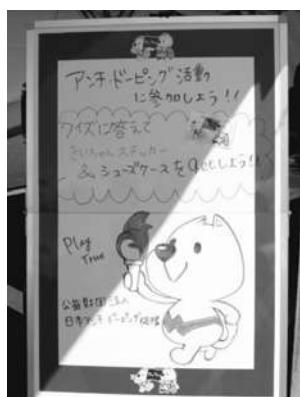 アンチ・ドーピング活動
に参加しよう!!
クイズに答えて
ステッカー
& シューズケースをGetしよう!!
Play
True
公益財団法人
日本アンチ・ドーピング機構